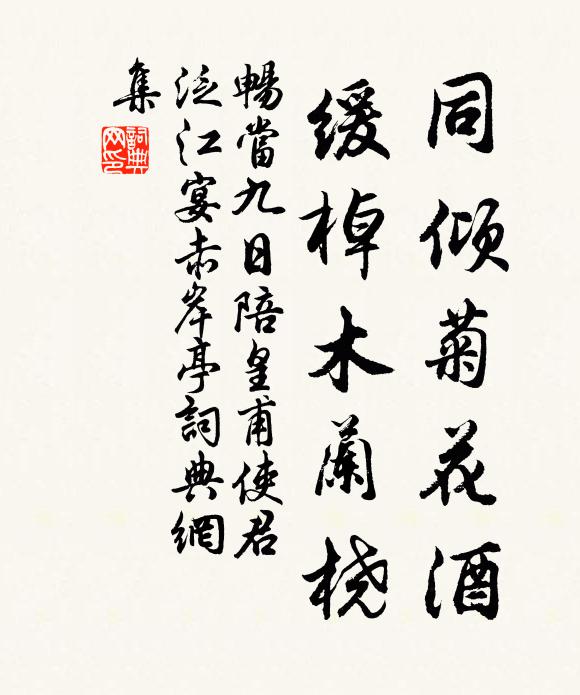 同倾菊花酒
缓棹木蘭桡
暢當九日陪皇甫使君
泛江宴赤岸亭詞典網
集
詞典
网印